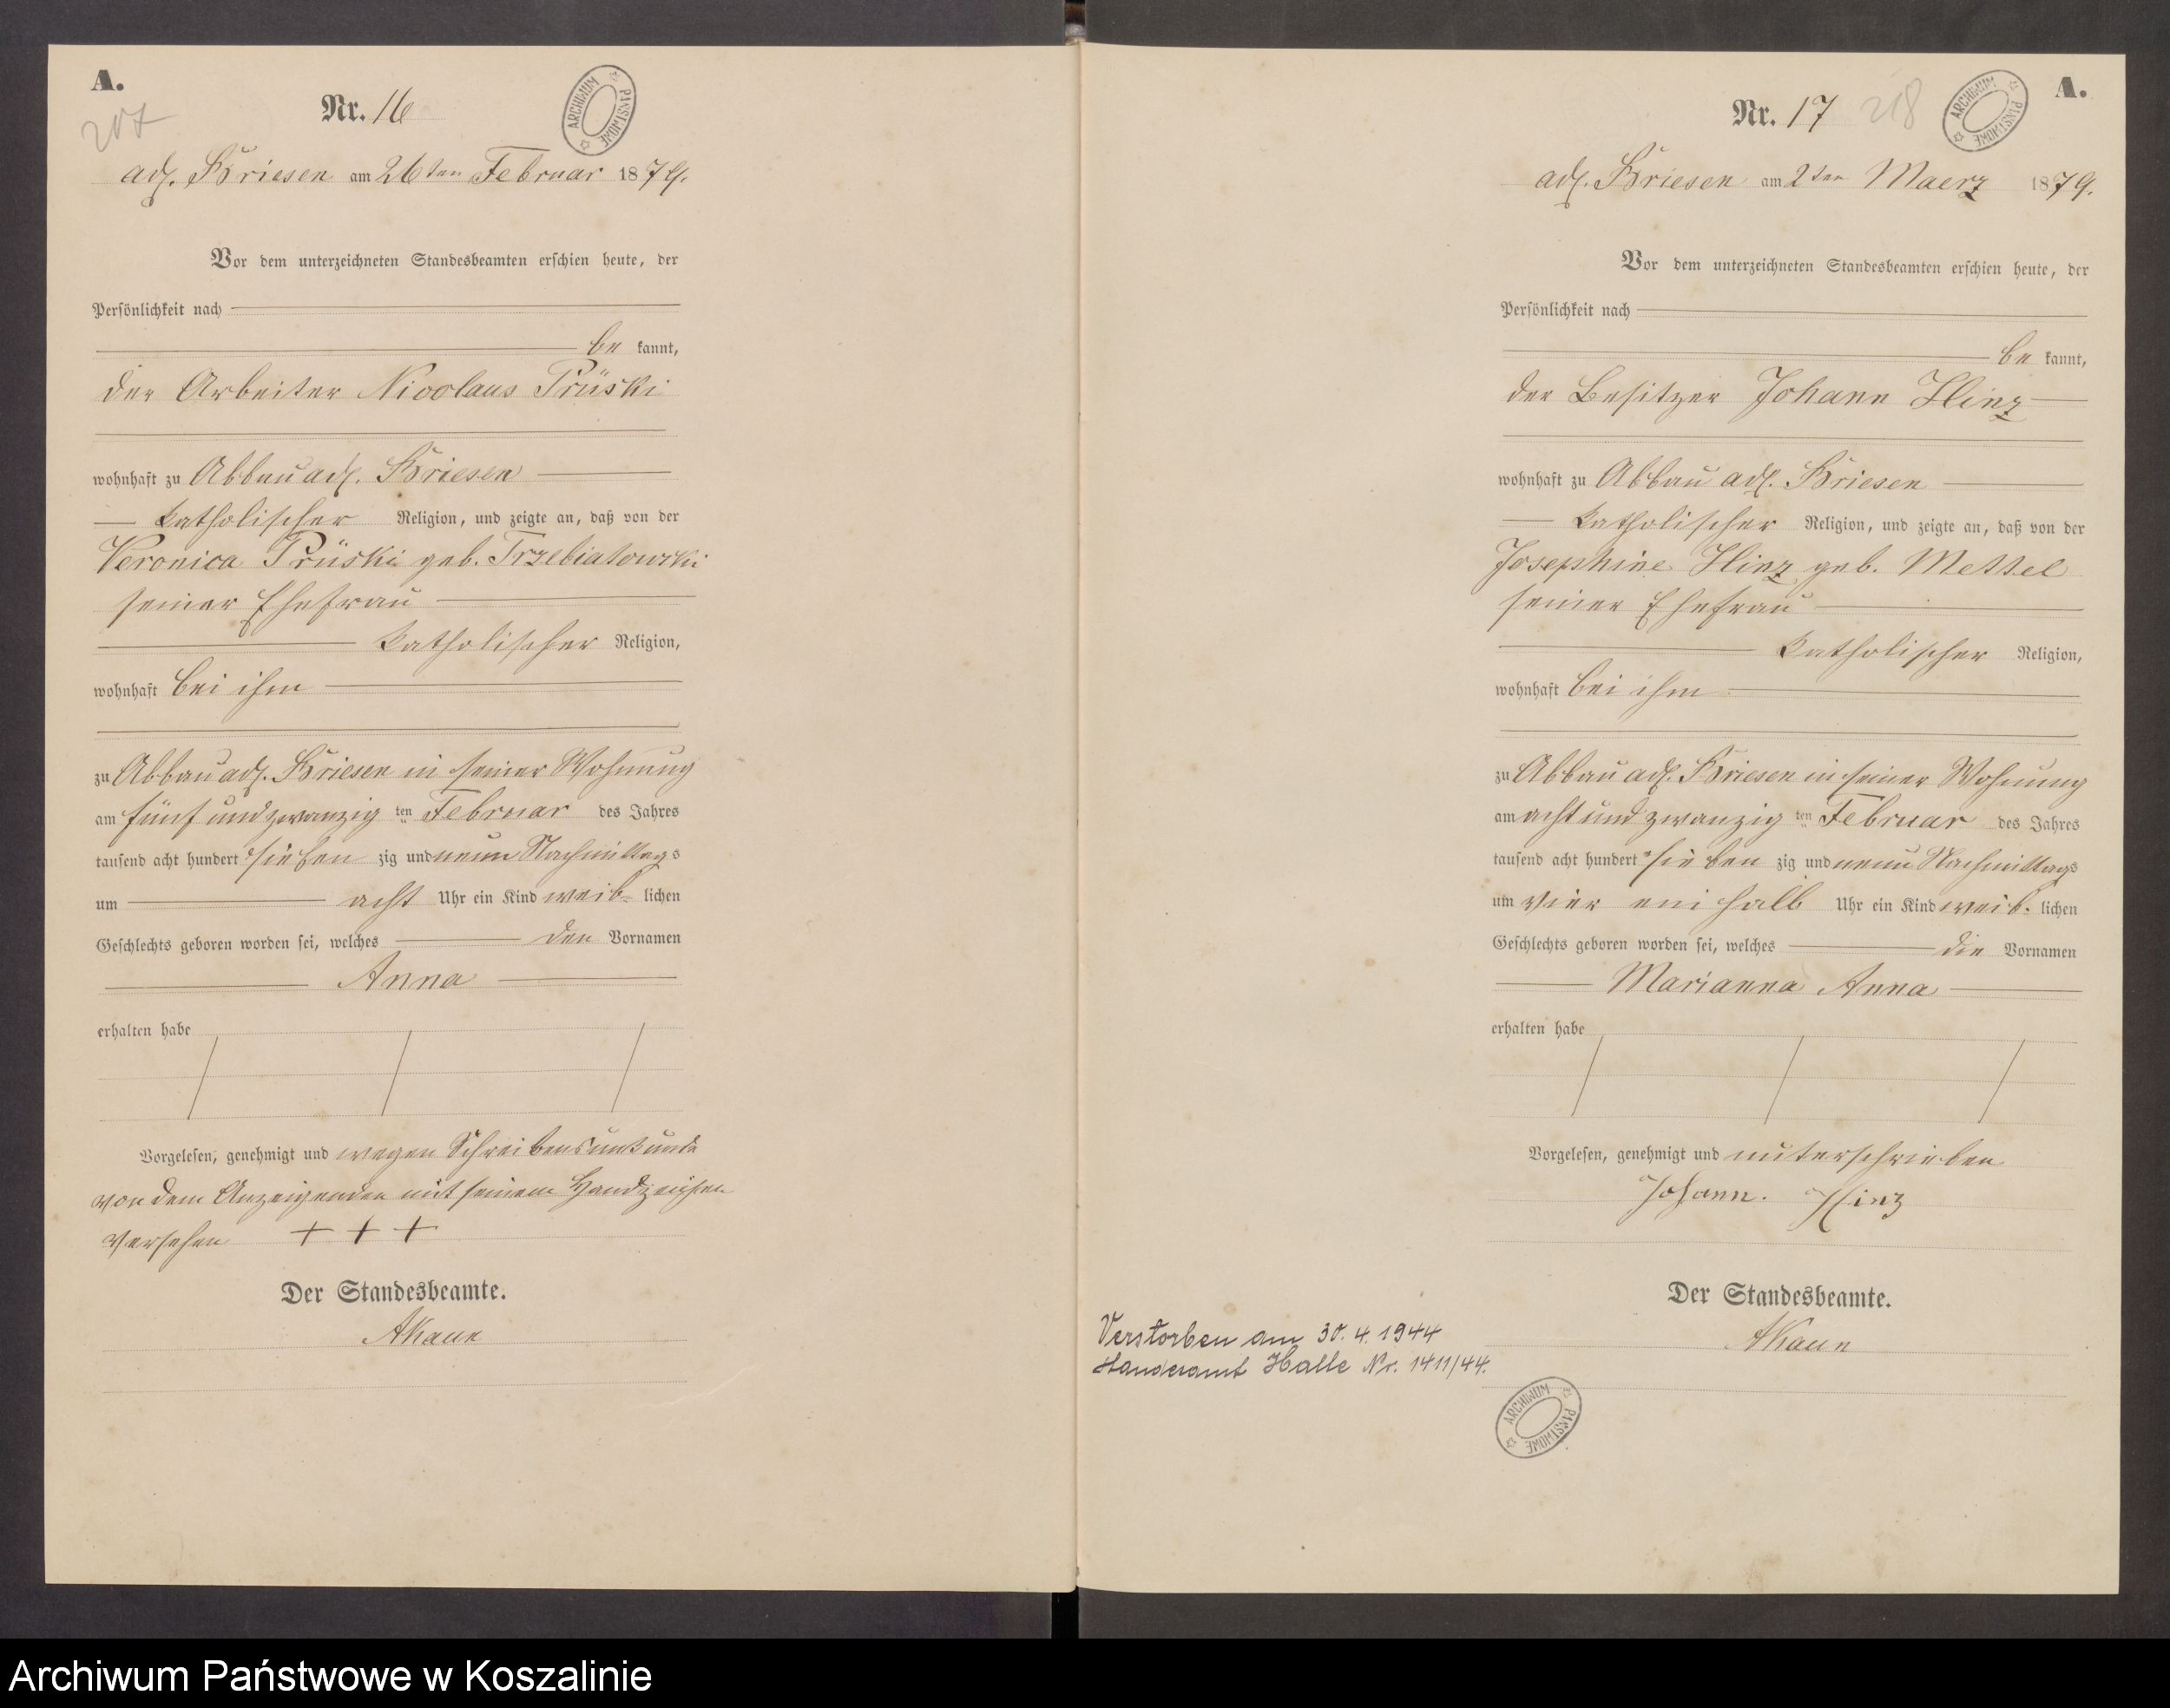 A.
207
Nr. 16
ARCHIWUM PAŃSTWOWE
adl. Briesen am 26ten Februar 1879.
Vor dem unterzeichneten Standesbeamten erschien heute, der
Persönlichkeit nach
be kannt,
der Arbeiter Nicolaus Prüski
wohnhaft zu Abbau adl. Briesen
katholischer Religion, und zeigte an, daß von der
Veronica Prüski geb. Trzebiatowski
seiner Ehefrau
katholischer Religion,
wohnhaft bei ihm
zu Abbau adl. Briesen in seiner Wohnung
am fünf und zwanzig ten Februar des Jahres
tausend acht hundert sieben zig und neun Nachmittags
um acht Uhr ein Kind weib- lichen
Geschlechts geboren worden sei, welches den Vornamen
Anna
erhalten habe
Vorgelesen, genehmigt und wegen Schreibensunkunde
von dem Anzeigenden mit seinem Handzeichen
versehen + + +
Der Standesbeamte.
AKaun
A.
Nr. 17
218
ARCHIWUM PAŃSTWOWE
adl. Briesen am 2ten Maerz 1879.
Vor dem unterzeichneten Standesbeamten erschien heute, der
Persönlichkeit nach
be kannt,
der Besitzer Johann Hinz
wohnhaft zu Abbau adl. Briesen
katholischer Religion, und zeigte an, daß von der
Josephine Hinz geb. Mettel
seiner Ehefrau
katholischer Religion,
wohnhaft bei ihm
zu Abbau adl. Briesen in seiner Wohnung
am acht und zwanzig ten Februar des Jahres
tausend acht hundert sieben zig und neun Nachmittags
um vier ein halb Uhr ein Kind weib- lichen
Geschlechts geboren worden sei, welches die Vornamen
Marianna Anna
erhalten habe
Vorgelesen, genehmigt und unterschrieben
Johann. Hinz
Der Standesbeamte.
AKaun
Verstorben am 30.4.1944
Standesamt Halle Nr. 1411/44.
ARCHIWUM PAŃSTWOWE
Archiwum Państwowe w Koszalinie